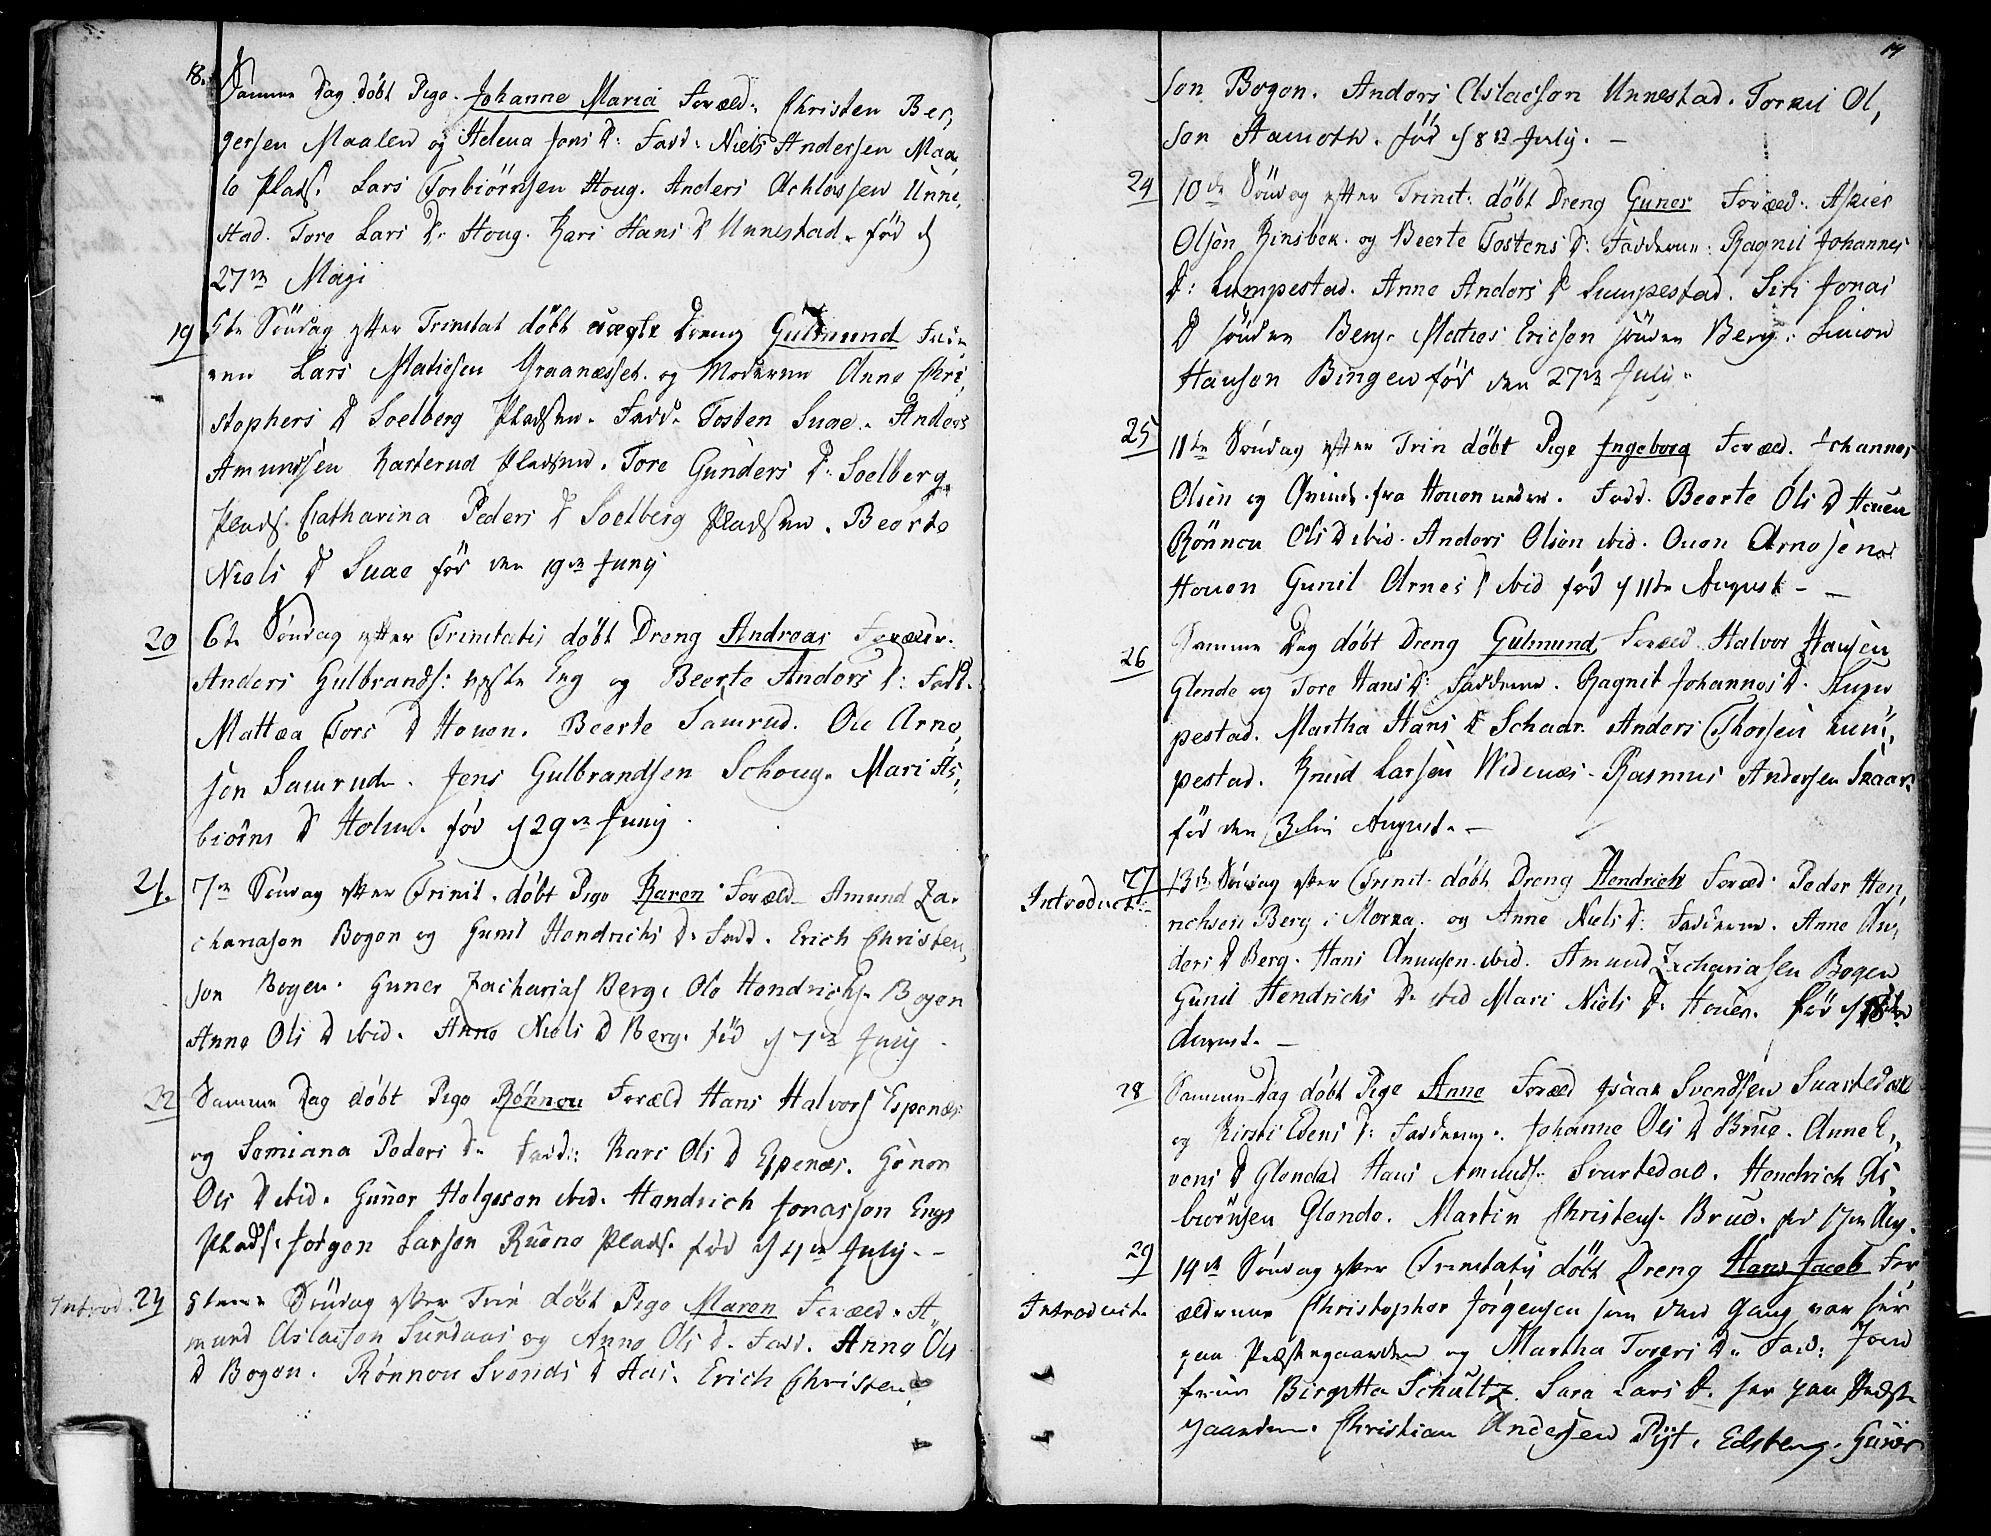 18. Samme Dag döbt Pige Johanne Maria Foræld: Christen Ber,
gersen Maalen og Helena Jons D: Fadd: Niels Andersen Maa
lo Plads. Lars Torbiörnsen Houg. Anders Achlossen Unne,
stad. Tore Lars D: Houg. Kari Hans D Unnestad. föd d
27de Maji
19 5te Söndag efter Trinitat döbt uægte Dreng Gulmund Fade
ren Lars Matiesen Graanæsset. og Moderen Anne Chri,
stophers D Soelberg Pladsen. Fadd. Tosten Suae. Anders
Amundsen Kasterud Pladsen. Tore Gunders D: Soelberg
Plads. Catharina Peders D Soelberg Pladsen. Beorte
Niels D Suae föd den 19de Junij
20 6te Söndag efter Trinitatis döbt Dreng Andreas Forældr.
Anders Gulbrands: Eng og Beerte Anders D: Fadd.
Mattea Tors D Houen. Beerte Samrud. Ole Arne,
sen Samrud. Jens Gulbrandsen Schoug. Mari As,
biörns D Holm. föd d 29de Junij
21. 7de Söndag efter Trinit. döbt Pige Karen Foræld. Amund Za.
chariasen Bogen og Gunil Hendrichs D: Fadd. Erich Christen,
sen Bogen. Guner Zacharias Berg. Ole Hendrichs. Bogen
Anne Ols D ibid. Anne Niels D Berg. föd d 7de Julij
22 Samme Dag döbt Pige Rönnou Foræld Hans Halvors Espenæs
og Semiana Peders D. Fadd: Kari Ols D Espenæs. Gönon
Ols D ibid. Guner Holgesen ibid. Hendrich Jonassen Engs
Plads. Jörgen Larsen Ruöno Plads. föd d 4de Julij. -
Introd. 23 Söndag efter Trin döbt Pige Maren Foræld. A,
mund Aslacsen Surdaas og Anne Ols D. Fadd. Anne Ols
D Bogen. Rönnou Svends D Aas. Erich Christen,
14
sen Bogen. Anders Aslacsen Unnestad. Torkil Ol,
sen Hamoth. föd d 8de Julij. -
24 10de Söndag efter Trinit: döbt Dreng Guner Foræld. Askier
Olsen Kinsbek. og Beerte Tostens D: Fadderne: Ragnil Johannes
D: Lumpestad. Anne Anders D Lumpestad. Siri Jonas
D sönden Berg. Matios Ericsen sönden Berg. Simon
Hansen Bingen föd den 27de Julij.
25 11te Söndag efter Trin döbt Pige Ingeborg Foræld. Johannes
Olsen og Qvinde fra Houen neden. Fadd. Beerte Ols D Houen
Rönnou Ols D ibid. Anders Olsen ibid. Ouen Arnesen
Houen Gunil Arnes D ibid föd d 11te August - -
26 Samme Dag döbt Dreng Gulmund Foræld Halvor Hansen
Glende og Tore Hans D: Fadderne. Ragnil Johannes D. Lum
pestad. Martha Hans D Schaar. Anders Thorsen Lum,
pestad. Knud Larsen Widenæs. Rasmus Andersen Skaar.
föd den 3die August. -
Introduct: 27 13de Söndag efter Trinit. döbt Dreng Hendrich Foræld. Peder Hen,
richsen Berg i Morka. og Anne Niels D: Fadderne. Anne An,
ders D Berg. Hans Amunsen ibid. Amund Zachariasen Bogen
Gunil Hendrichs D. ibid Mari Niels D: Houen. föd d 18de
August. -
28 Samme Dag döbt Pige Anne Foræld Isaak Svendsen Suartedall
og Kirsti Edens D: Fadderne. Johanne Ols D Brue. Anne E,
vens D Glende Hans Amunds. Svartedal. Hendrich As,
biörnsen Glende. Martin Christens. Brue. föd 17de Aug.
29 14de Söndag efter Trinitatis döbt Dreng Hans Jacob For
Introduct. ældrene Christopher Jörgensen som den Gang var her
paa Præstegaarden og Martha Torers D. Fad: Jom
frue Birgitta Schultz. Sara Lars D. her paa Præste
gaarden. Christian Andersen Pijt. Edsberg. Guner